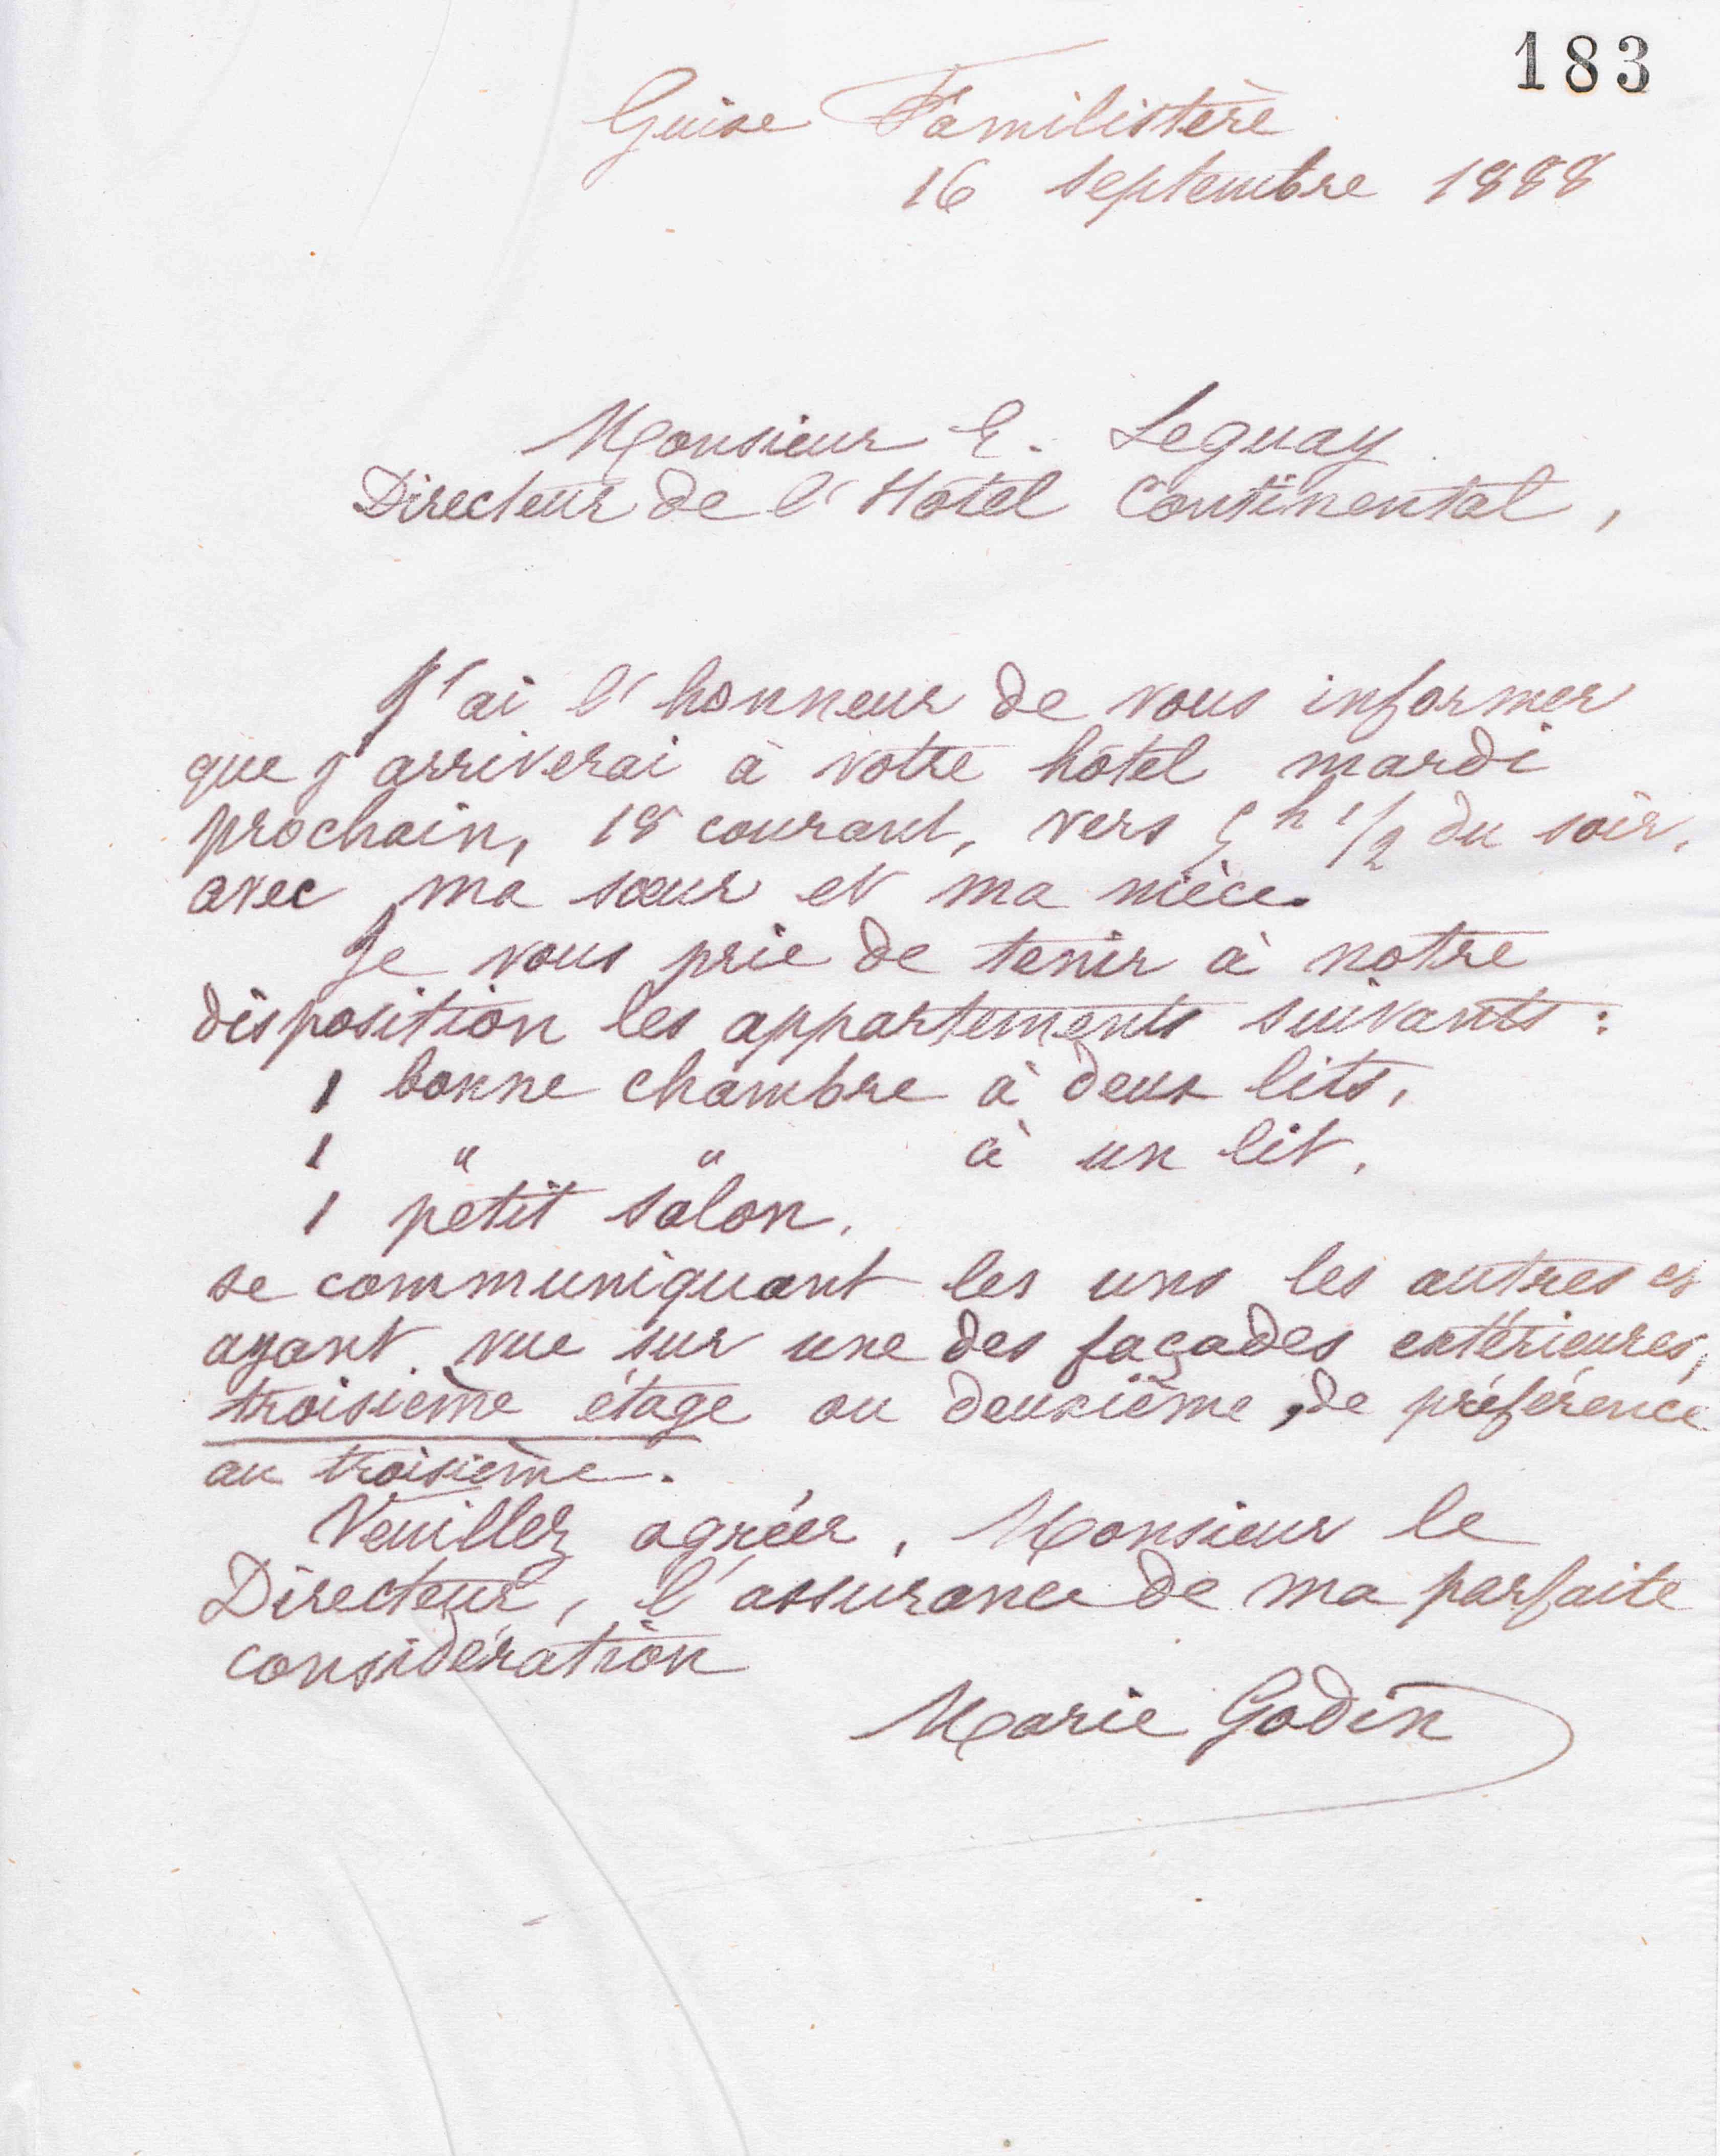 183
Guise Familistère
16 septembre 1888
Monsieur E. Leguay
Directeur de l'Hôtel Continental,
J'ai l'honneur de vous informer
que j'arriverai à votre hôtel mardi
prochain, 18 courant, vers 5h 1/2 du soir,
avec ma sœur et ma nièce.
Je vous prie de tenir à notre
disposition les appartements suivants :
1 bonne chambre à deux lits,
1 " " à un lit,
1 petit salon,
se communiquant les uns les autres et
ayant vue sur une des façades extérieures,
troisième étage ou deuxième, de préférence
au troisième.
Veuillez agréer, Monsieur le
Directeur, l'assurance de ma parfaite
considération
Marie Godin